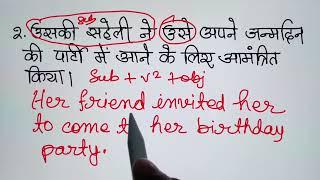 Sub
२. उसकी सहेली ने उसे अपने जन्मदिन
की पार्टी में आने के लिए आमंत्रित
किया। Sub + v² + obj
Her friend invited her
to come to her birthday
party.